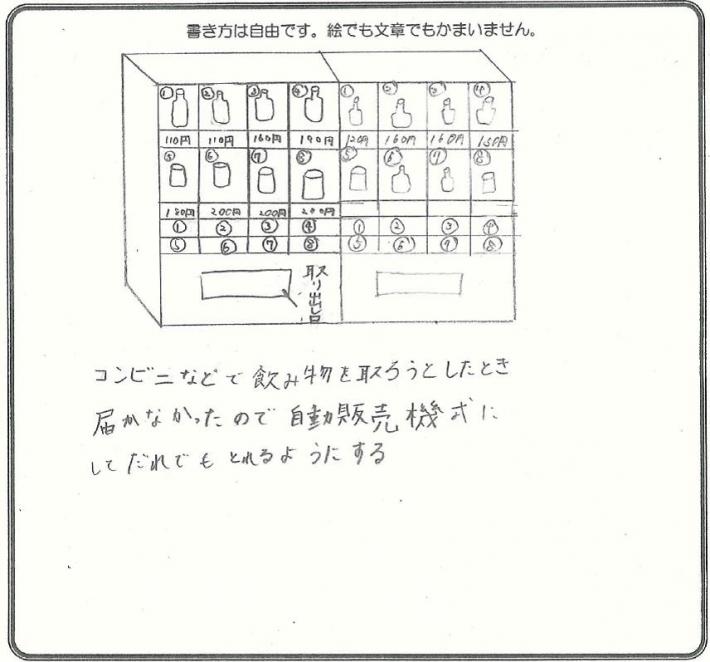 書き方は自由です。絵でも文章でもかまいません。
① ② ③ ④ ① ② ③ ④
110円 110円 160円 190円 120円 160円 160円 150円
⑤ ⑥ ⑦ ⑧ ⑤ ⑥ ⑦ ⑧
180円 200円 200円 200円
① ② ③ ④ ① ② ③ ④
⑤ ⑥ ⑦ ⑧ ⑤ ⑥ ⑦ ⑧
取り出し口
コンビニなどで飲み物を取ろうとしたとき
届かなかったので自動販売機式に
してだれでもとれるようにする